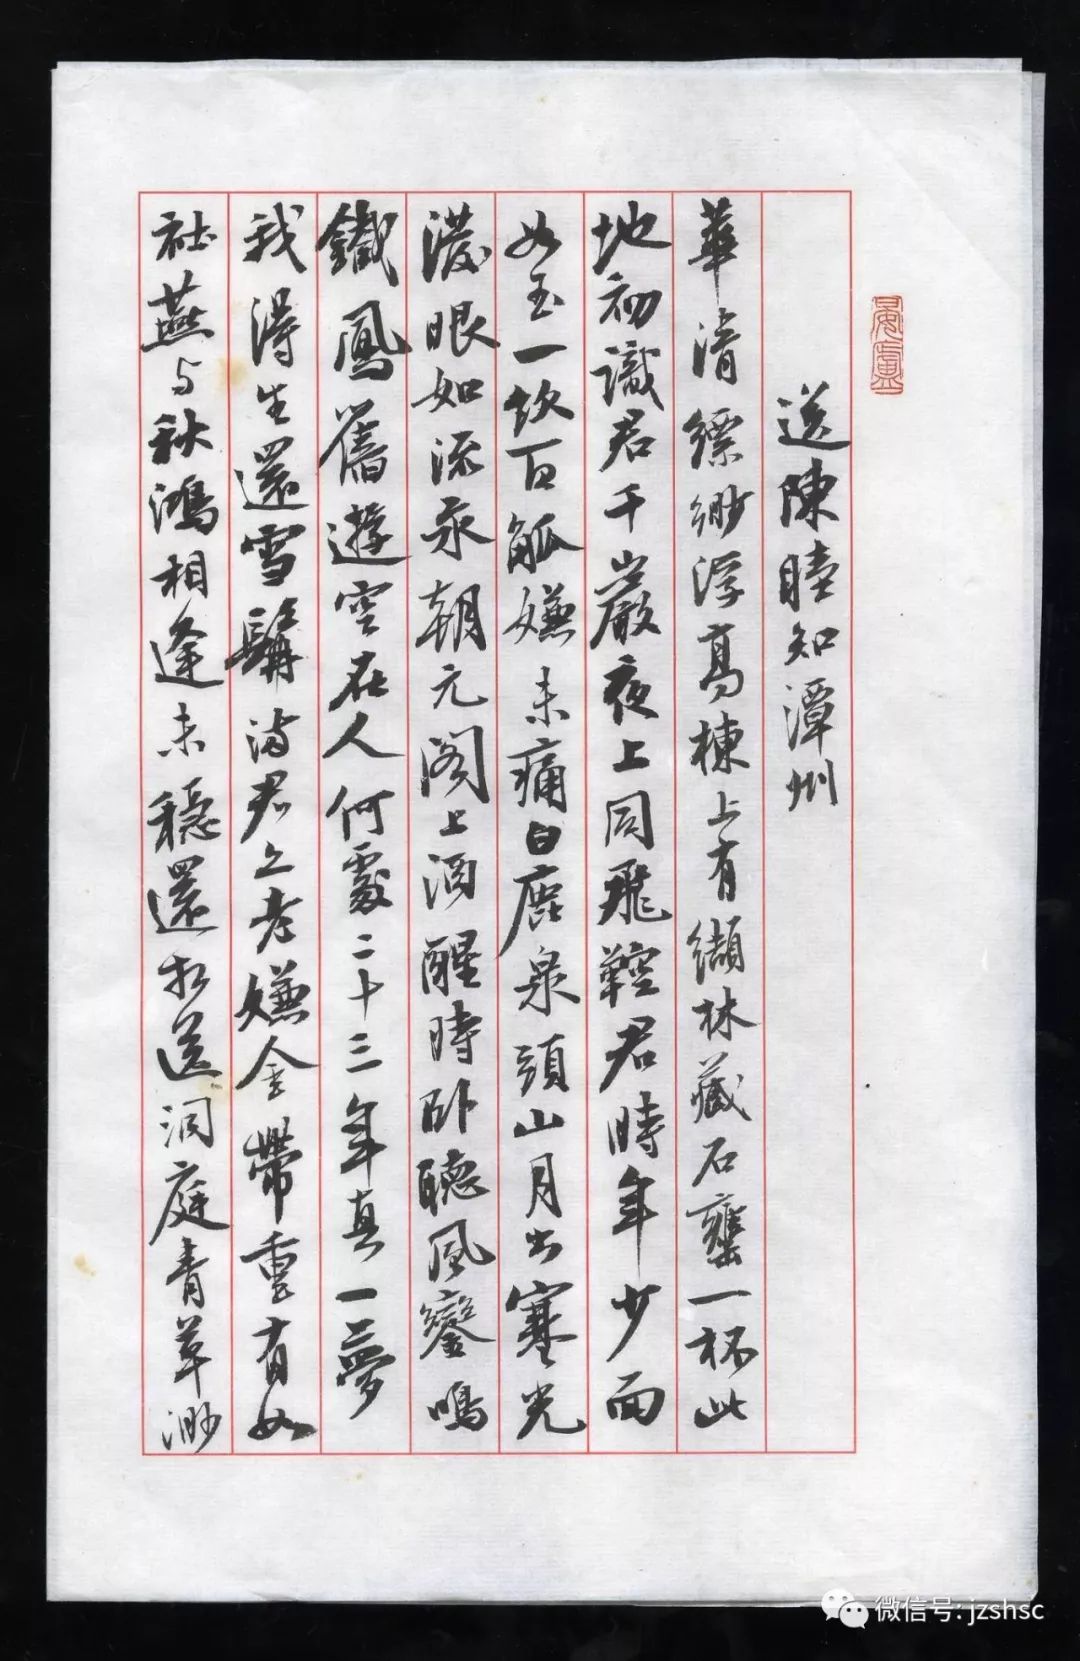 送陳睦知潭州
華清縹緲浮高棟上有纈林藏石甕一杯此
地初識君千巖夜上同飛鞚君時年少面
如玉一飲百觚嫌未痛白鹿泉頭山月出寒光
潑眼如流汞朝元閣上酒醒時臥聽風鑾鳴
鐵鳳舊遊空在人何處二十三年真一夢
我得生還雪髯滿君亦老嫌金帶重有如
社燕与秋鴻相逢未穩還相送洞庭青草渺
微信号: jzshsc